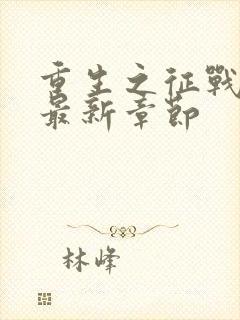 重生之征戰
最新章節
林峰